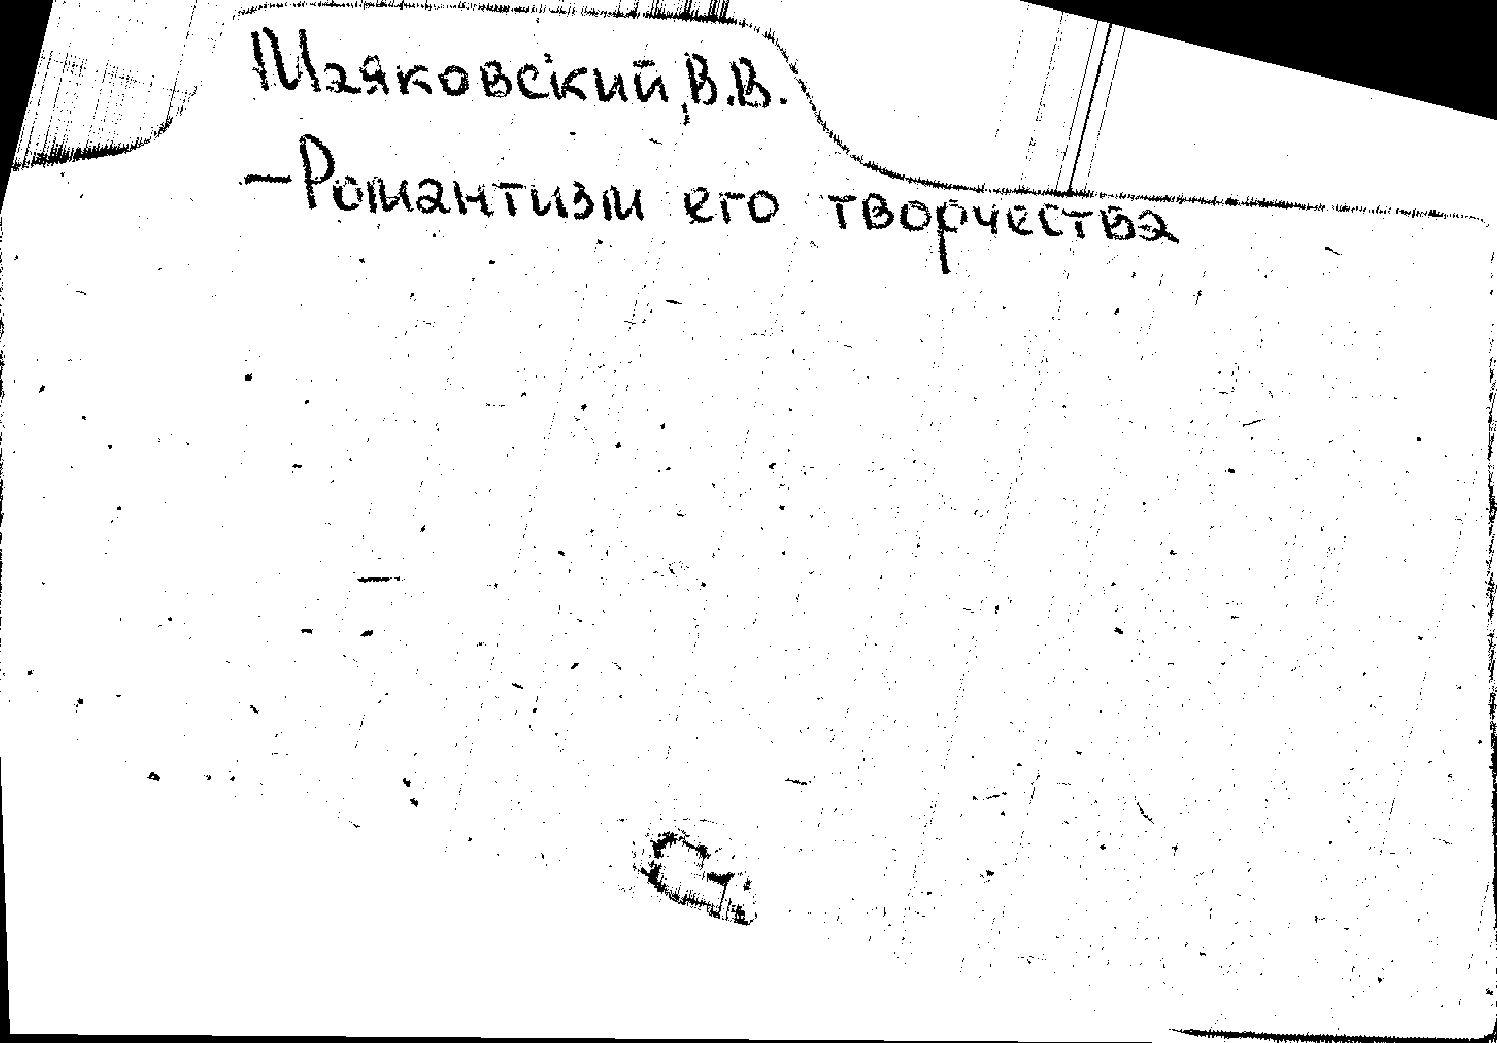 Маяковский, В.В.
—Романтизм его творчества